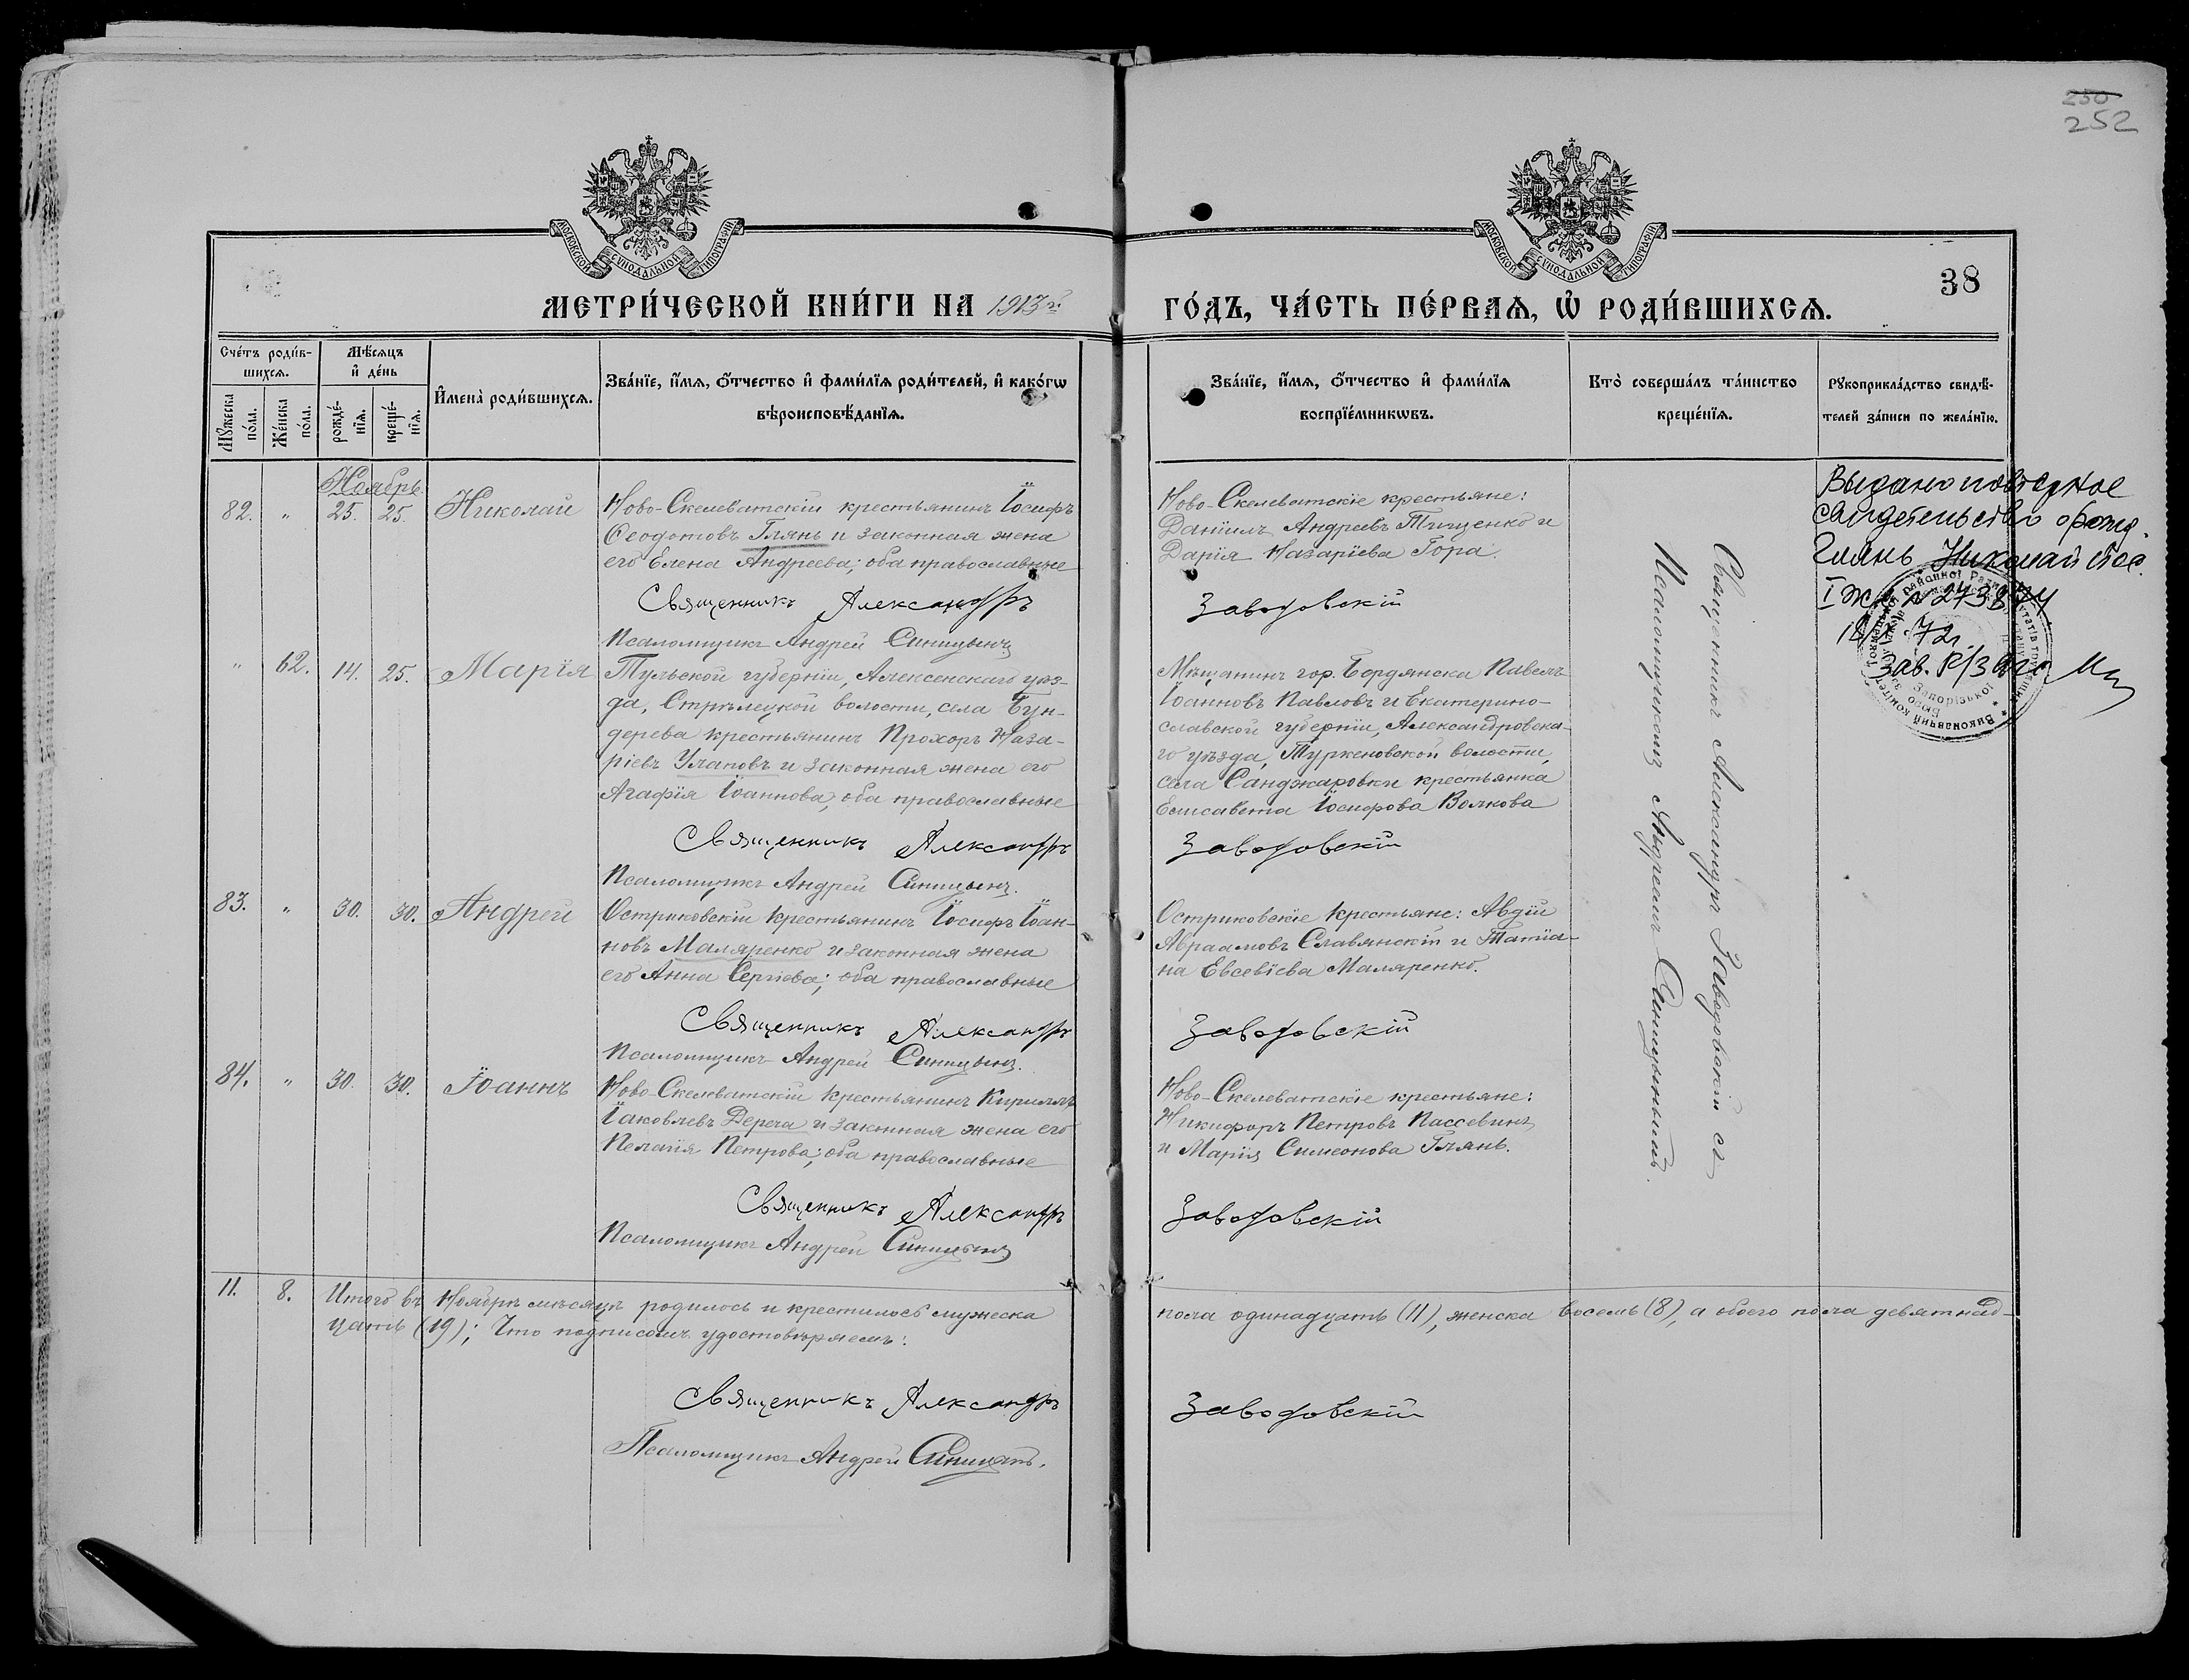 250
252
МОСКОВСКОЙ СѴНОДАЛЬНОЙ ТИПОГРАФІИ
МОСКОВСКОЙ СѴНОДАЛЬНОЙ ТИПОГРАФІИ
38
МЕТРИ́ЧЕСКОЙ КНИ́ГИ НА 1913 г.
ГО́ДЪ, ЧА́СТЬ ПЕ́РВАѦ, Ѡ҆ РОДИ́ВШИХСѦ.
Сче́тъ роди́в-
шихсѧ.
Мѣ́сѧцъ
и҆ де́нь
Мꙋ́жеска
по́ла.
Же́нска
по́ла.
рожде́-
нїѧ.
креще́-
нїѧ.
И҆мена̀ роди́вшихсѧ.
Зва́нїе, и҆́мѧ, ѻ҆́тчество и҆ фами́лїѧ роди́телей, и҆ како́гѡ
вѣроисповѣ́данїѧ.
Зва́нїе, и҆́мѧ, ѻ҆́тчество и҆ фами́лїѧ
воспрїе́мникѡвъ.
Кто̀ соверша́лъ та́инство
креще́нїѧ.
Рꙋкоприкла́дство свидѣ́-
телей за́писи по жела́нїю.
Ноябрь.
82. " 25. 25. Николай
Ново-Скелеватскій крестьянинъ Іосифъ
Ѳеодотовъ Глянь и законная жена
его Елена Андреева; оба православные
Священникъ Александръ
Псаломщикъ Андрей Синицынъ
Ново-Скелеватскіе крестьяне:
Даніилъ Андреевъ Тищенко и
Дарія Назаріева Гора.
Заводовскій
Выдано повторное
свидетельство о рожд.
Глянь Николай Иос.
18/X-72
Зав.
" 62. 14. 25. Марія
Тульской губерніи, Алексенскаго уѣз-
да, Стрѣлецкой волости, села Бун-
дерева крестьянинъ Прохоръ Наза-
ріевъ Улановъ и законная жена его
Агафія Іоаннова, оба православные
Священникъ Александръ
Псаломщикъ Андрей Синицынъ.
Мѣщанинъ гор. Бердянска Павелъ
Іоанновъ Павловъ и Екатерино-
славской губерніи, Александровска-
го уѣзда, Туркеновской волости,
села Санджаровки крестьянка
Елисавета Іосифова Волкова
Заводовскій
83. " 30. 30. Андрей
Остриковскій крестьянинъ Іосифъ Іоан-
новъ Маляренко и законная жена
его Анна Сергіева; оба православные
Священникъ Александръ
Псаломщикъ Андрей Синицынъ.
Остриковскіе крестьяне: Авдій
Авраамовъ Славянскій и Татіа-
на Евсевіева Маляренко.
Заводовскій
84. " 30. 30. Іоаннъ
Ново-Скелеватскій крестьянинъ Кириллъ
Іаковлевъ Дереча и законная жена его
Пелагія Петрова; оба православные
Священникъ Александръ
Псаломщикъ Андрей Синицынъ
Ново-Скелеватскіе крестьяне:
Никифоръ Петровъ Пассевинъ
и Марія Симеонова Глянь.
Заводовскій
Священникъ Александръ Заводовскій съ
Псаломщикомъ Андреемъ Синицынымъ.
11. 8. Итого въ Ноябрѣ мѣсяцѣ родилось и крестилось мужеска
пола одинадцать (11), женска восемь (8), а обоего пола девятнад-
цать (19); Что подписомъ удостовѣряемъ:
Священникъ Александръ
Заводовскій
Псаломщикъ Андрей Синицынъ.